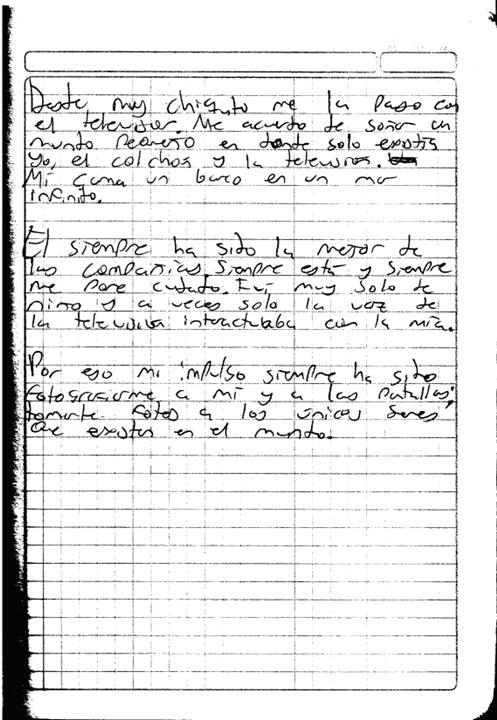 Desde muy chiquito me la paso con
el televisor. Me acuerdo de soñar un
mundo pequeño en donde solo existía
yo, el colchón y la television.
Mi cama un barco en un mar
infinito.
El siempre ha sido la mejor de
las compañías. Siempre está y siempre
me pone cuidado. Fuí muy solo de
niño y a veces solo la voz de
la television interactuaba con la mía.
Por eso mi impulso siempre ha sido
fotografiarme a mí y a las pantallas;
tomarle fotos a los únicos seres
que existen en el mundo.